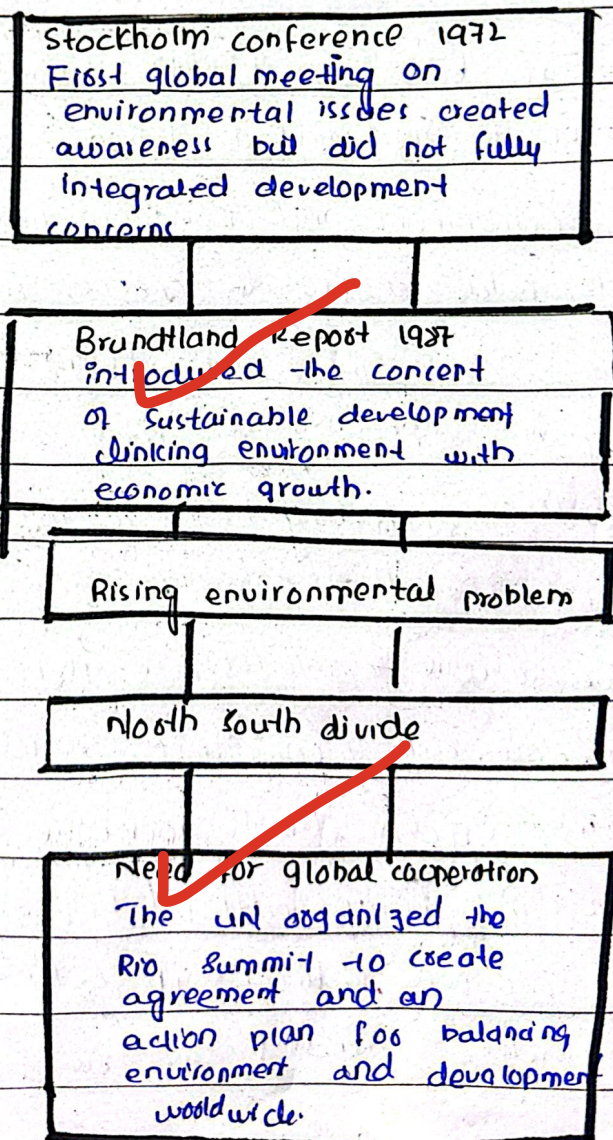 Stockholm conference 1972
First global meeting on
environmental issues created
awareness but did not fully
integrated development
concerns
Brundtland Report 1987
introduced the concept
of sustainable development
linking environment with
economic growth.
Rising environmental problem
North South divide
Need for global cooperation
The UN organized the
Rio Summit to create
agreement and an
action plan for balancing
environment and development
worldwide.